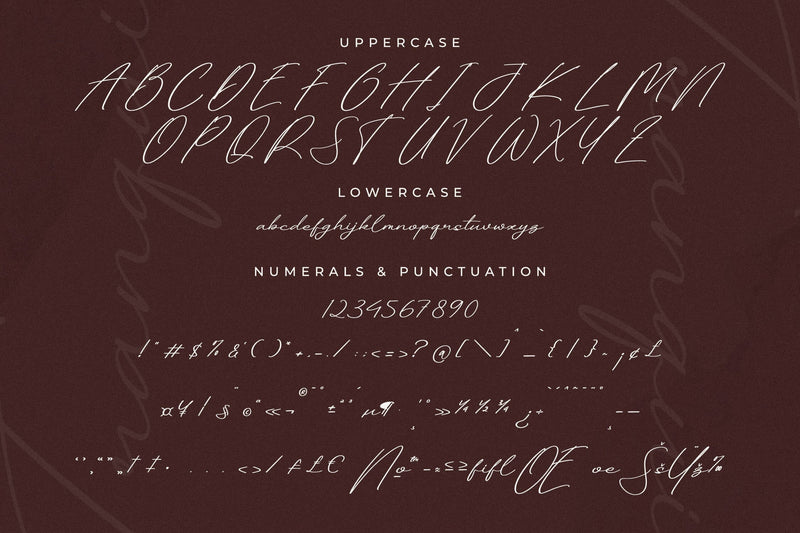 UPPERCASE
ABCDEFGHIJKLMN
OPQRSTUVWXYZ
LOWERCASE
abcdefghijklmnopqrstuvwxyz
NUMERALS & PUNCTUATION
1234567890
!"#$%&'()*+,-./:;<=>?@[\]^_`{|}~¡¢£
¤¥¦§¨©ª«¬®¯°±²³´µ¶·¸¹º»¼½¾¿÷ˆˇ˘˙˚˛˜˝–—
‘’‚“”„†‡•…‹›⁄₣₤€ №™−≈≤≥fiflŒ œ ŠšŸž‰